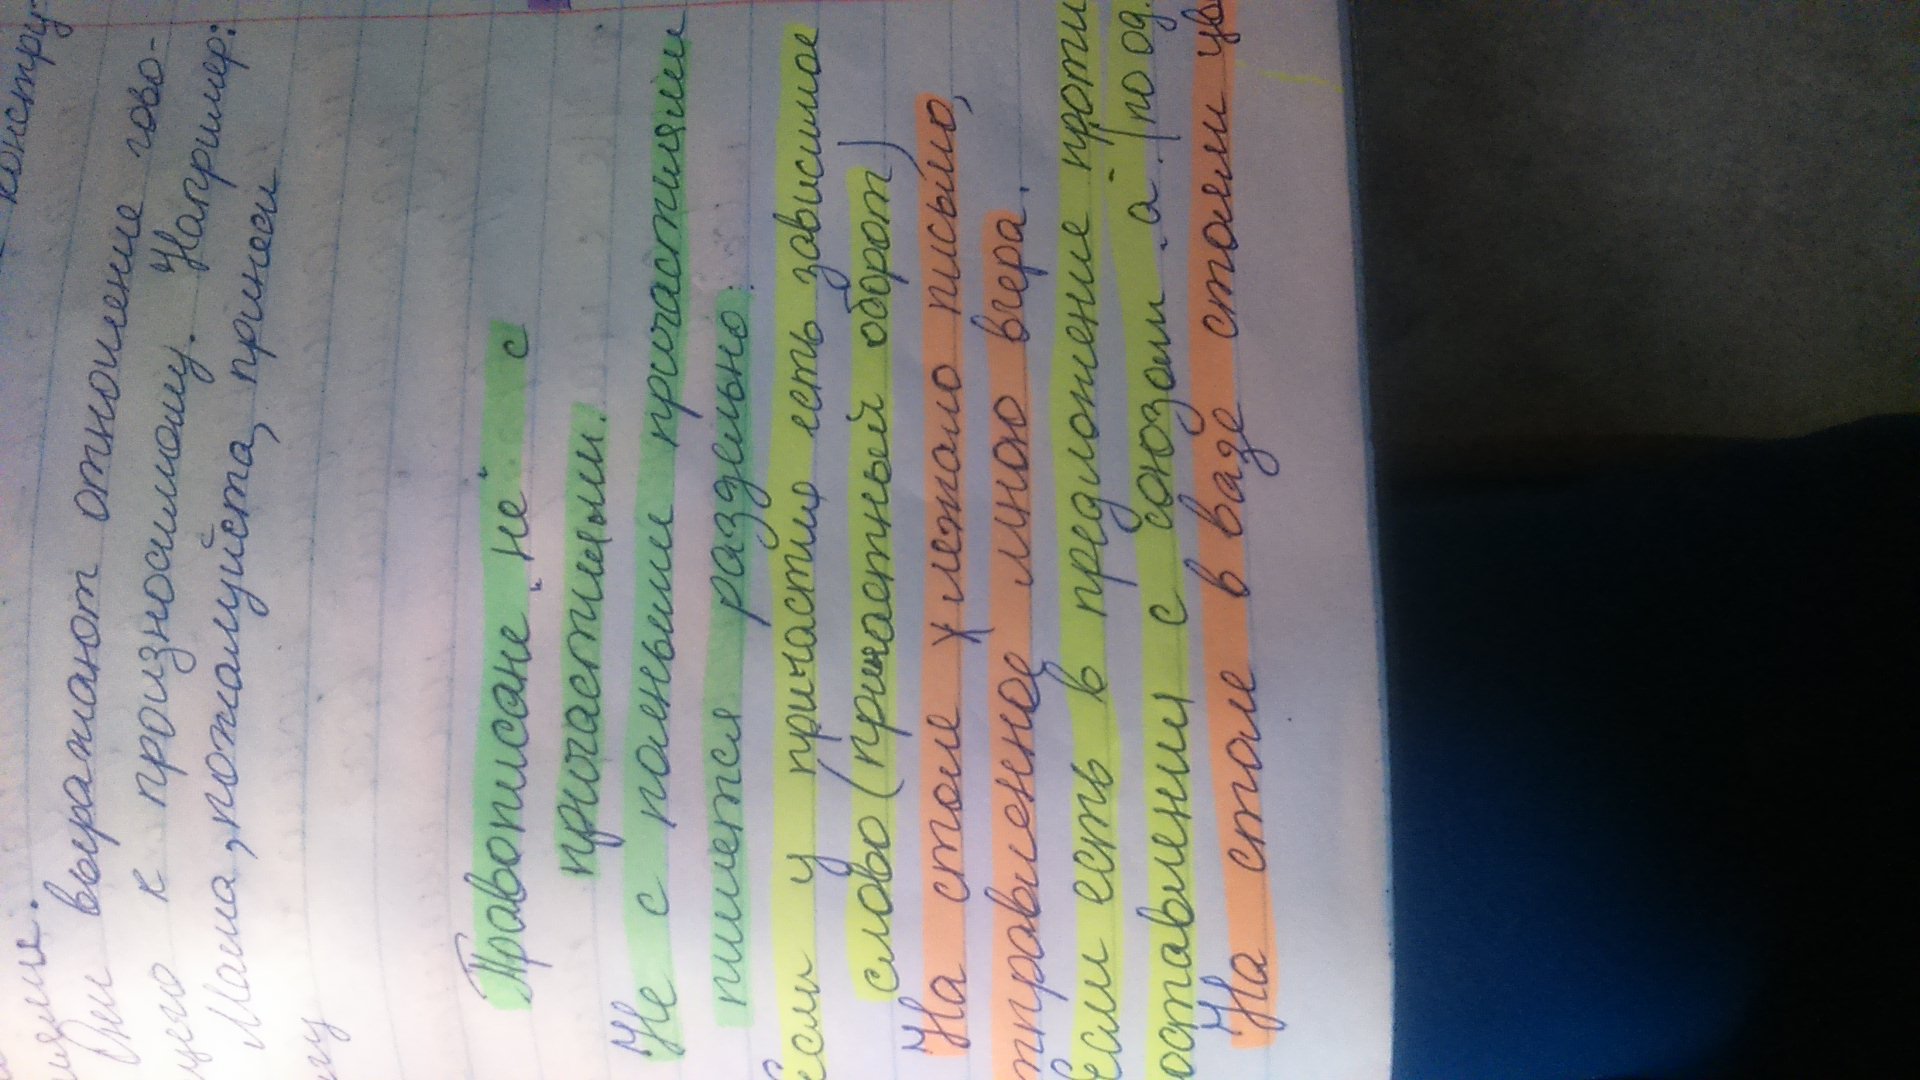 констру-
ями.
Они выражают отношение гово-
щего к произносимому. Например:
Мама, пожалуйста, принеси
гу
Правописане "не" с
причастиями.
Не с полными причастиями
пишется раздельно:
Если у причастия есть зависимое
слово (причастный оборот)
На столе лежало письмо,
тправленное мною вчера.
Если есть в предложение проти
оставления с союзом "а". (по од.
На столе в вазе стояли цв